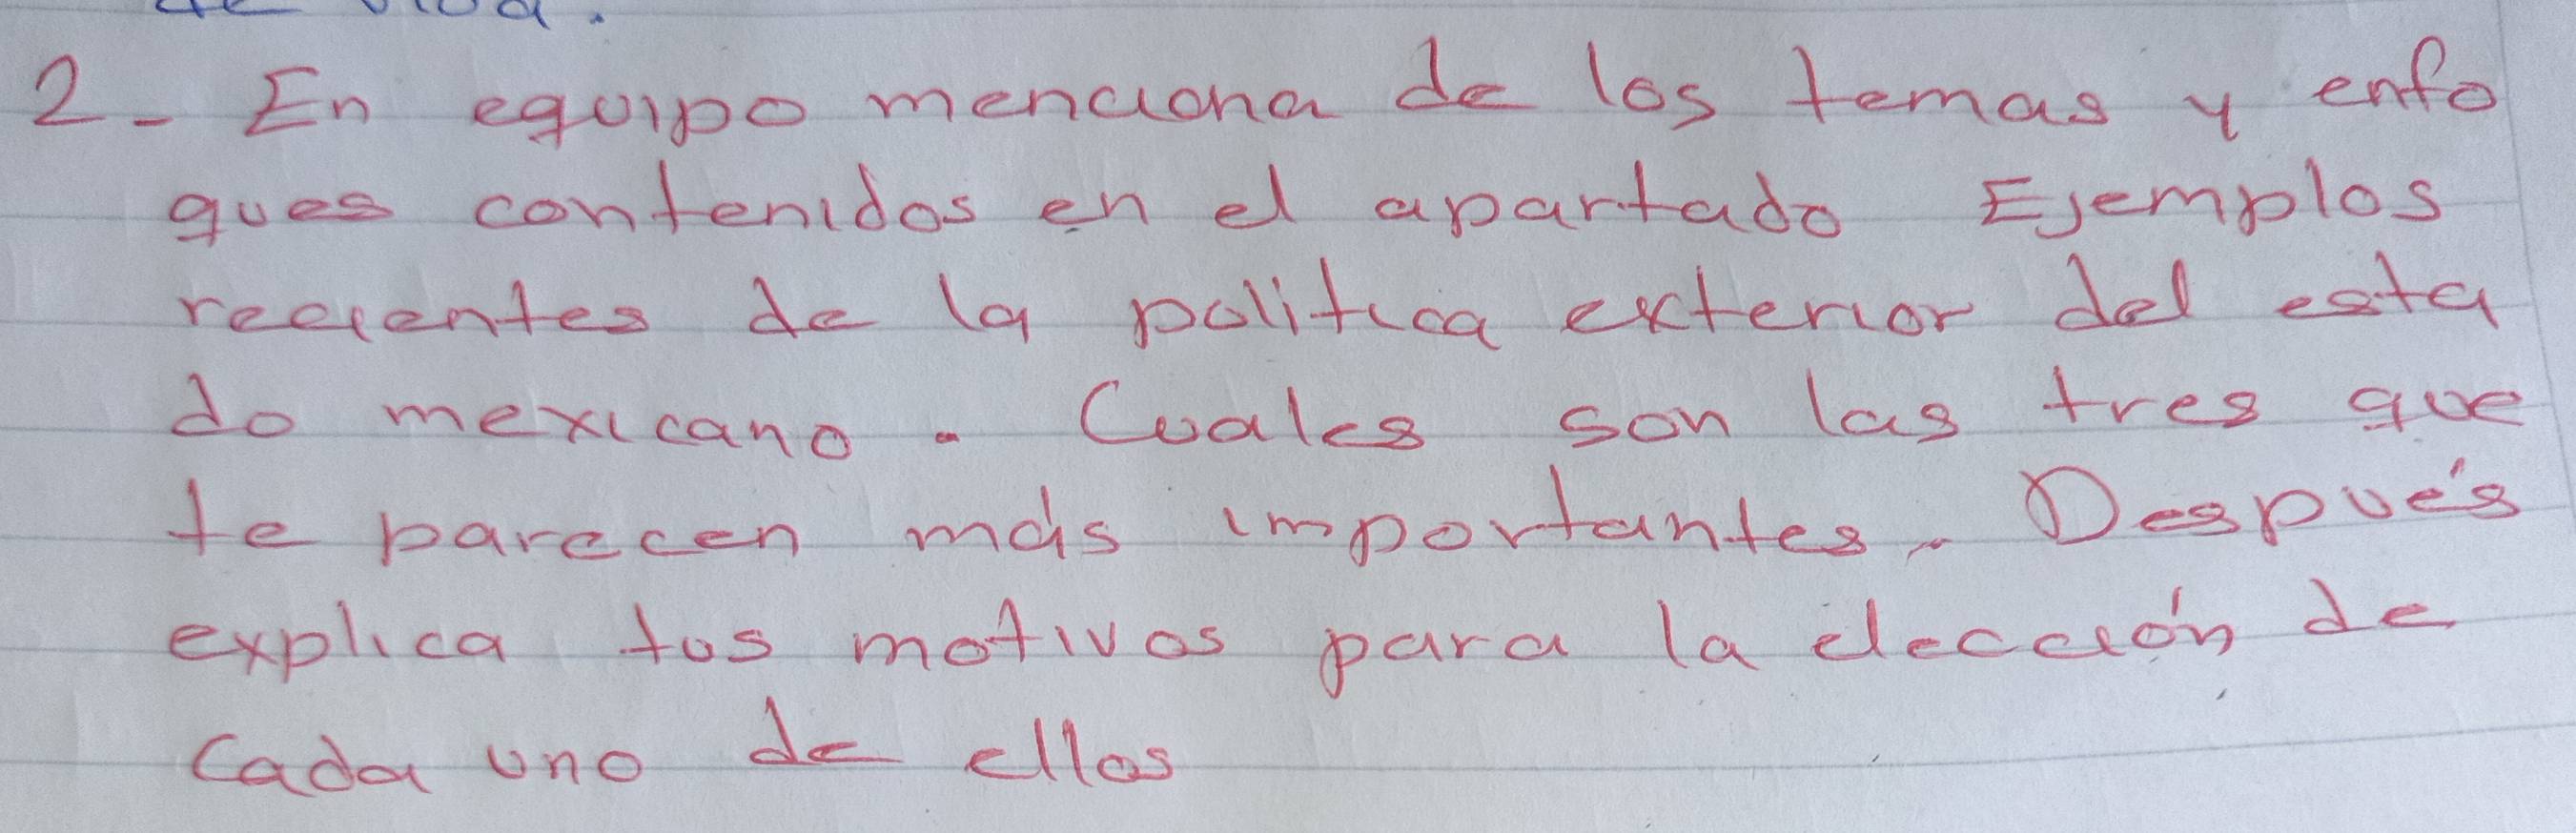 de vida.
2- En equipo menciona de los temas y enfo
ques contenidos en el apartado Ejemplos
recientes de la politica exterior del esta
do mexicano. Cuales son las tres que
te parecen más importantes. Después
explica tus motivos para la elección de
Cada uno de ellos